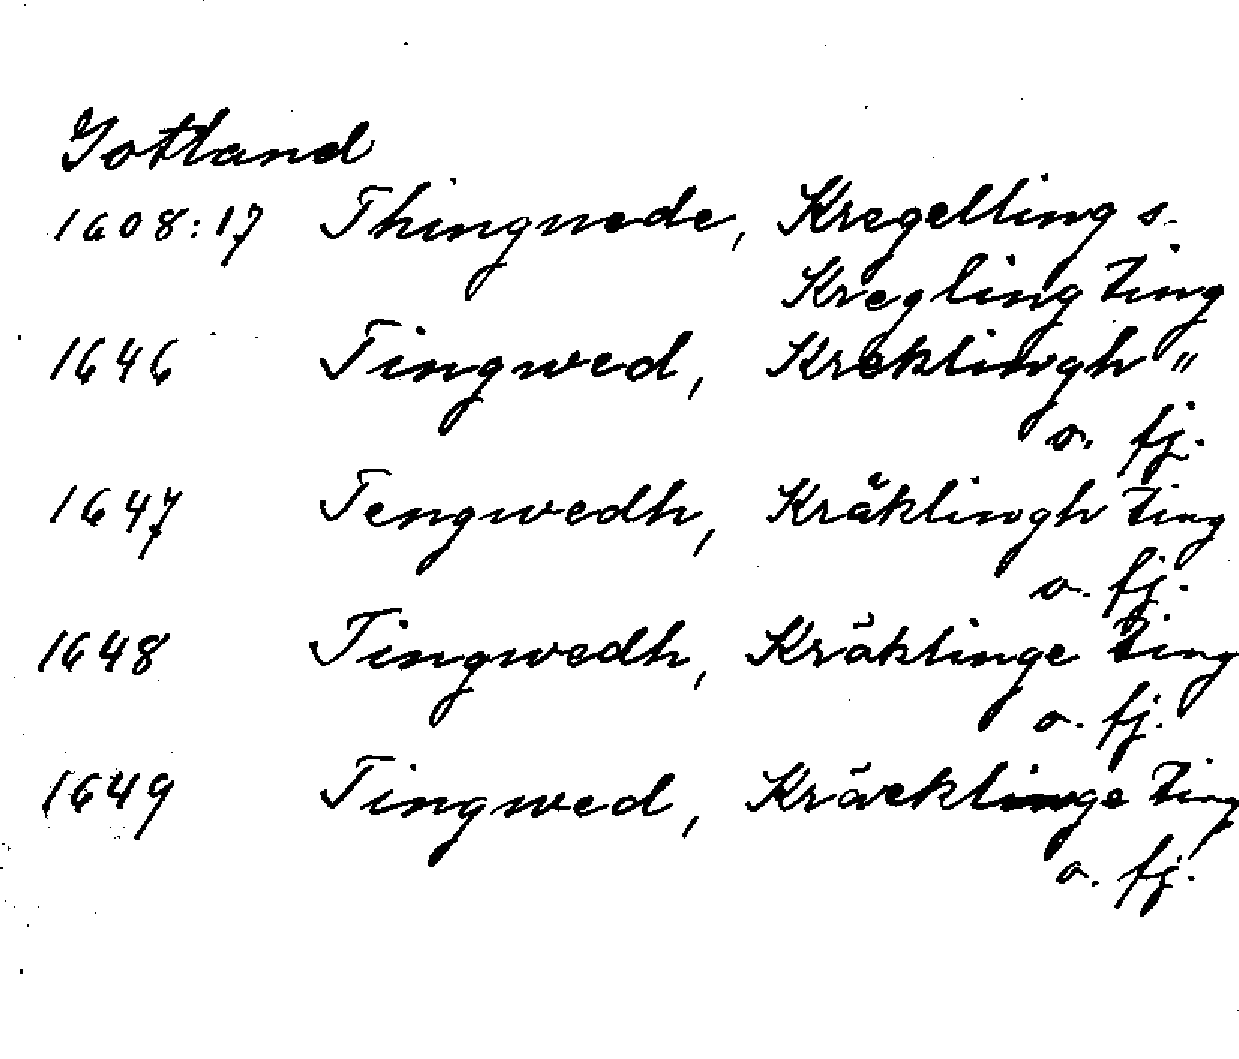 Gotland
1608:17 Thingwede, Kregelling s.
Kregling ting
1646 Tingwed, Kreklingh "
o. fj.
1647 Tengwedh, Kräklingh ting
o. fj.
1648 Tingwedh, Kräklinge ting
o. fj.
1649 Tingwed, Kräcklinge ting
o. fj.